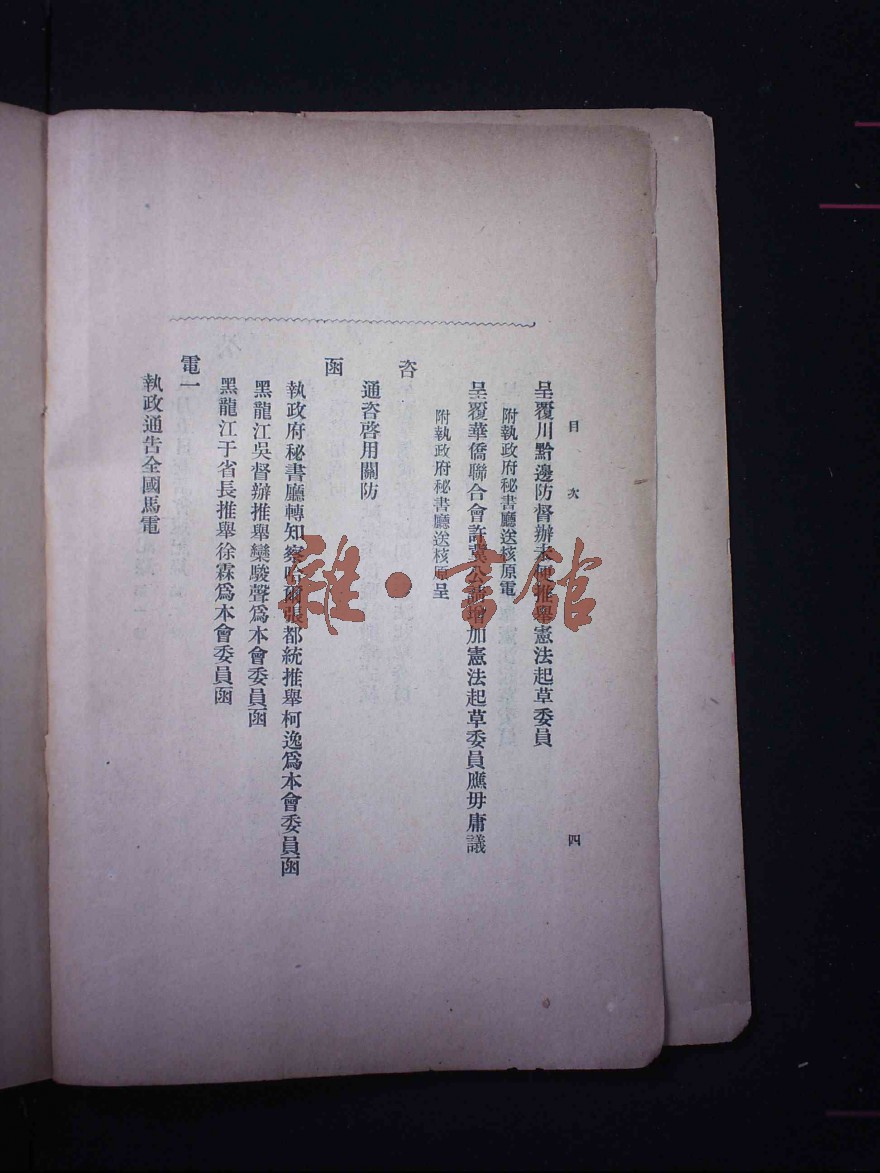 目次
四
呈覆川黔邊防督辦未便推舉憲法起草委員
附執政府秘書廳送核原電
呈覆華僑聯合會許冀公請增加憲法起草委員應毋庸議
附執政府秘書廳送核原呈
咨
通咨啓用關防
函
執政府秘書廳轉知察哈爾張都統推舉柯逸爲本會委員函
黑龍江吳督辦推舉欒駿聲爲本會委員函
黑龍江于省長推舉徐霖爲本會委員函
電一
執政通告全國馬電
雜·書館